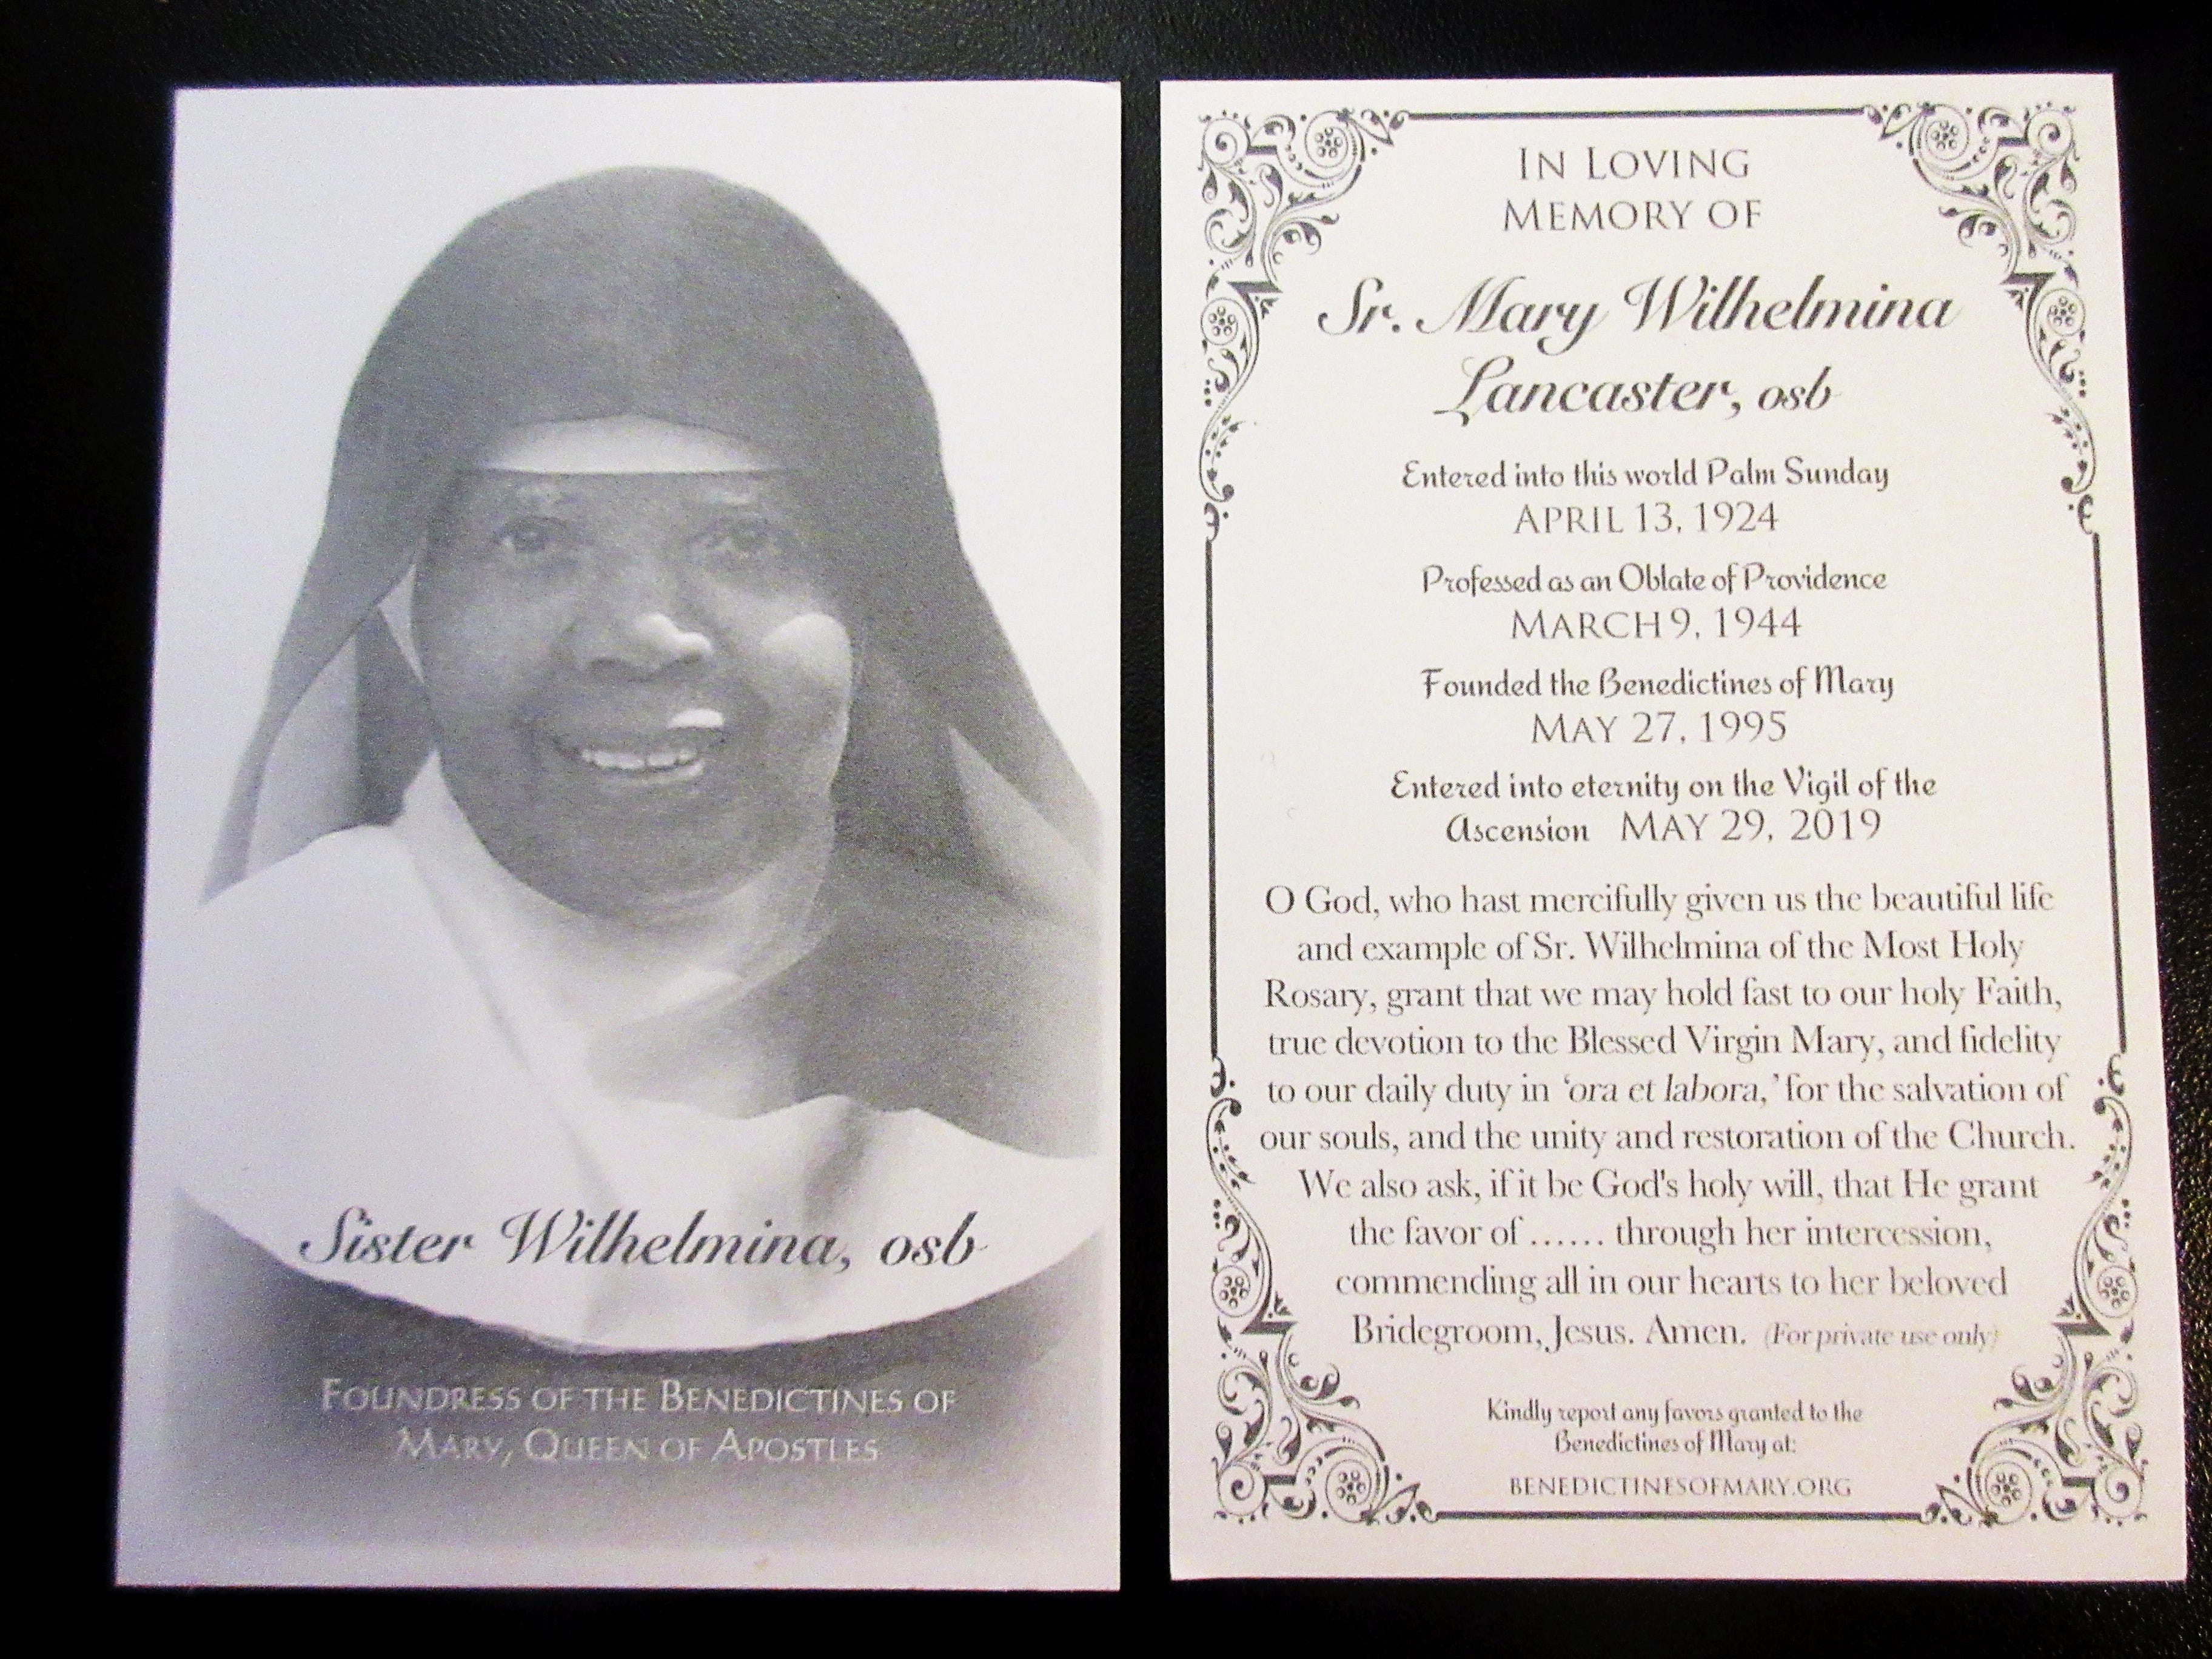 Sister Wilhelmina, osb
FOUNDRESS OF THE BENEDICTINES OF
MARY, QUEEN OF APOSTLES
IN LOVING
MEMORY OF
Sr. Mary Wilhelmina
Lancaster, osb
Entered into this world Palm Sunday
APRIL 13, 1924
Professed as an Oblate of Providence
MARCH 9, 1944
Founded the Benedictines of Mary
MAY 27, 1995
Entered into eternity on the Vigil of the
Ascension MAY 29, 2019
O God, who hast mercifully given us the beautiful life
and example of Sr. Wilhelmina of the Most Holy
Rosary, grant that we may hold fast to our holy Faith,
true devotion to the Blessed Virgin Mary, and fidelity
to our daily duty in ‘ora et labora,’ for the salvation of
our souls, and the unity and restoration of the Church.
We also ask, if it be God's holy will, that He grant
the favor of …… through her intercession,
commending all in our hearts to her beloved
Bridegroom, Jesus. Amen. (For private use only)
Kindly report any favors granted to the
Benedictines of Mary at:
BENEDICTINESOFMARY.ORG